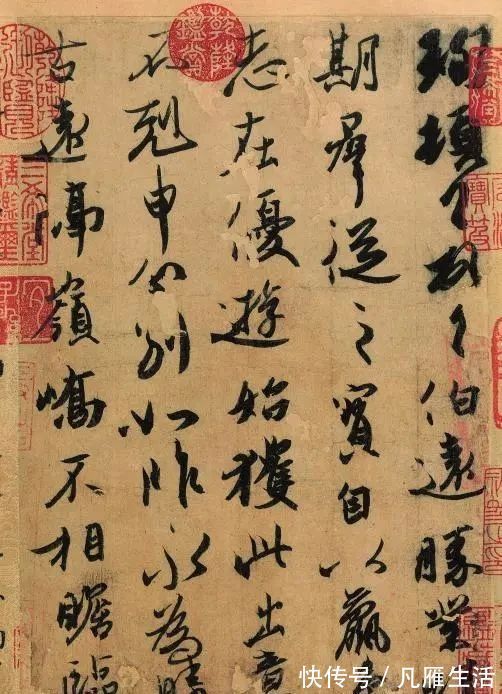 珣頓首頓首伯遠勝業
期群從之寶自以羸
志在優遊始獲此出意
不剋申分別如昨永為
古遠隔嶺嶠不相瞻臨
乾隆鑑賞
三希堂精鑑璽
快传号 / 凡雁生活